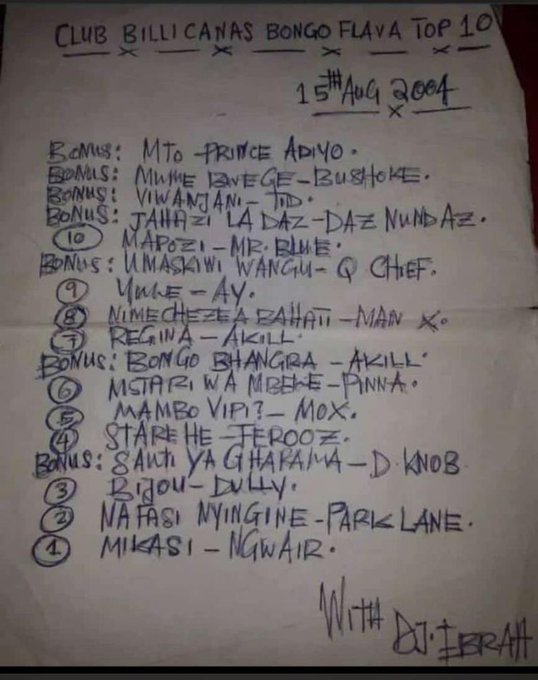 CLUB BILLICANAS BONGO FLAVA TOP 10
15TH AUG 2004
BONUS: MTO - PRINCE ADIYO.
BONUS: MUME BWEGE - BUSHOKE.
BONUS: VIWANJANI - TID.
BONUS: JAHAZI LA DAZ - DAZ NUNDAZ.
10 MAPOZI - MR. BLUE.
BONUS: UMASKIWI WANGU - Q CHIEF.
9 YULE - AY.
8 NIMECHEZEA BAHATI - MAN X.
7 REGINA - AKILL.
BONUS: BONGO BHANGRA - AKILL.
6 MSTARI WA MBELE - PINNA.
5 MAMBO VIPI? - MOX.
4 STAREHE - FEROOZ.
BONUS: SAUTI YA GHARAMA - D. KNOB
3 BIJOU - DULLY.
2 NAFASI NYINGINE - PARK LANE.
1 MIKASI - NGWAIR.
WITH DJ. IBRAH